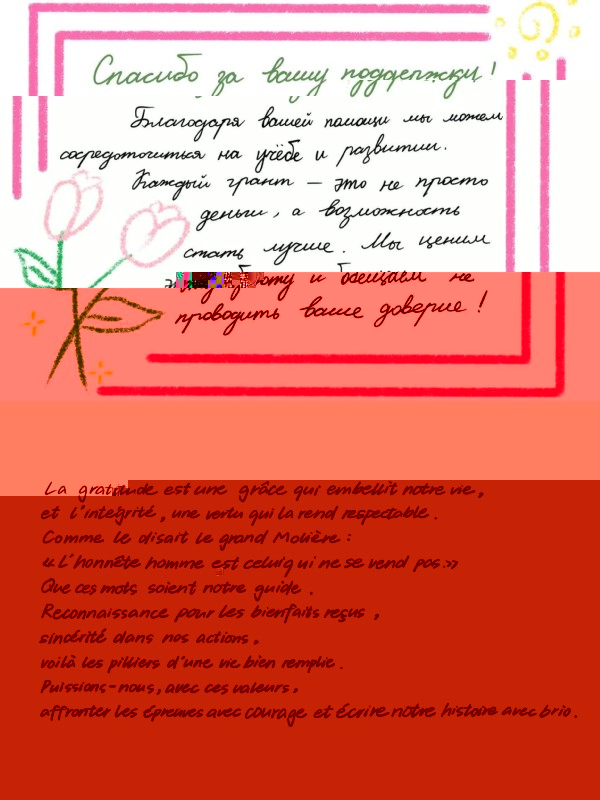 Спасибо за вашу поддержку!
Благодаря вашей помощи мы можем
сосредоточиться на учёбе и развитии.
Каждый грант — это не просто
деньги, а возможность
стать лучше. Мы ценим
работу и обещаем не
проводить ваше доверие!
La gratitude est une grâce qui embellit notre vie,
et l'integrité, une vertu qui la rend respectable.
Comme le disait le grand Molière:
«L'honnête homme est celui qui ne se vend pas.»
Que ces mots soient notre guide.
Reconnaissance pour les bienfaits reçus,
sincérité dans nos actions,
voilà les pilliers d'une vie bien remplie.
Puissions-nous, avec ces valeurs,
affronter les épreuves avec courage et écrire notre histoire avec brio.